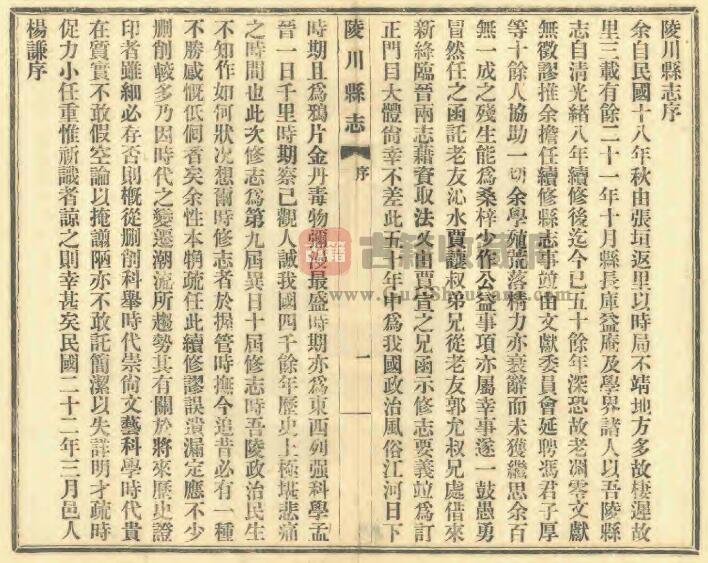 陵川縣志序
余自民國十八年秋由張垣返里以時局不靖地方多故棲遲故
里三載有餘二十一年十月縣長庫益庵及學界諸人以吾陵縣
志自清光緒八年續修後迄今已五十餘年深恐故老凋零文獻
無徵謬推余擔任續修縣志事竝由文獻委員會延聘馮君子厚
等十餘人協助一切余學殖荒落精力亦衰辭而未獲繼思余百
無一成之殘生能爲桑梓少作公益事項亦屬幸事遂一鼓愚勇
冒然任之函託老友沁水賈讓叔弟兄從老友郭允叔兄處借來
新絳臨晉兩志藉資取法又由賈宣之兄函示修志要義竝爲訂
正門目大體尙幸不差此五十年中爲我國政治風俗江河日下
陵川縣志
序
一
時期且爲鴉片金丹毒物彌漫最盛時期亦爲東西列强科學孟
晉一日千里時期察己觀人誠我國四千餘年歷史上極堪悲痛
之時間也此次修志爲第九屆異日十屆修志時吾陵政治民生
不知作如何狀况想爾時修志者於握管時撫今追昔必有一種
不勝感慨低徊者矣余性本懶疏任此續修謬誤遺漏定應不少
刪削較多乃因時代之變遷潮流所趨勢其有關於將來歷史證
印者雖細必存否則槪從刪削科舉時代崇尙文藝科學時代貴
在質實不敢假空論以掩譾陋亦不敢託簡潔以失詳明才疏時
促力小任重惟祈識者諒之則幸甚矣民國二十二年三月邑人
楊謙序
古籍收藏網